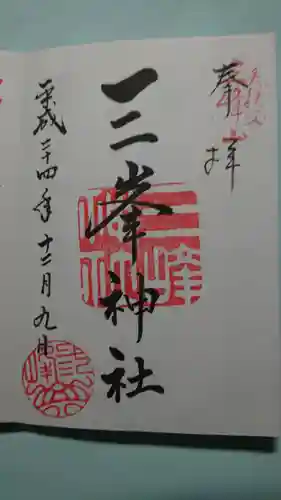 奉拝
三峯神社
平成二十四年十二月九日